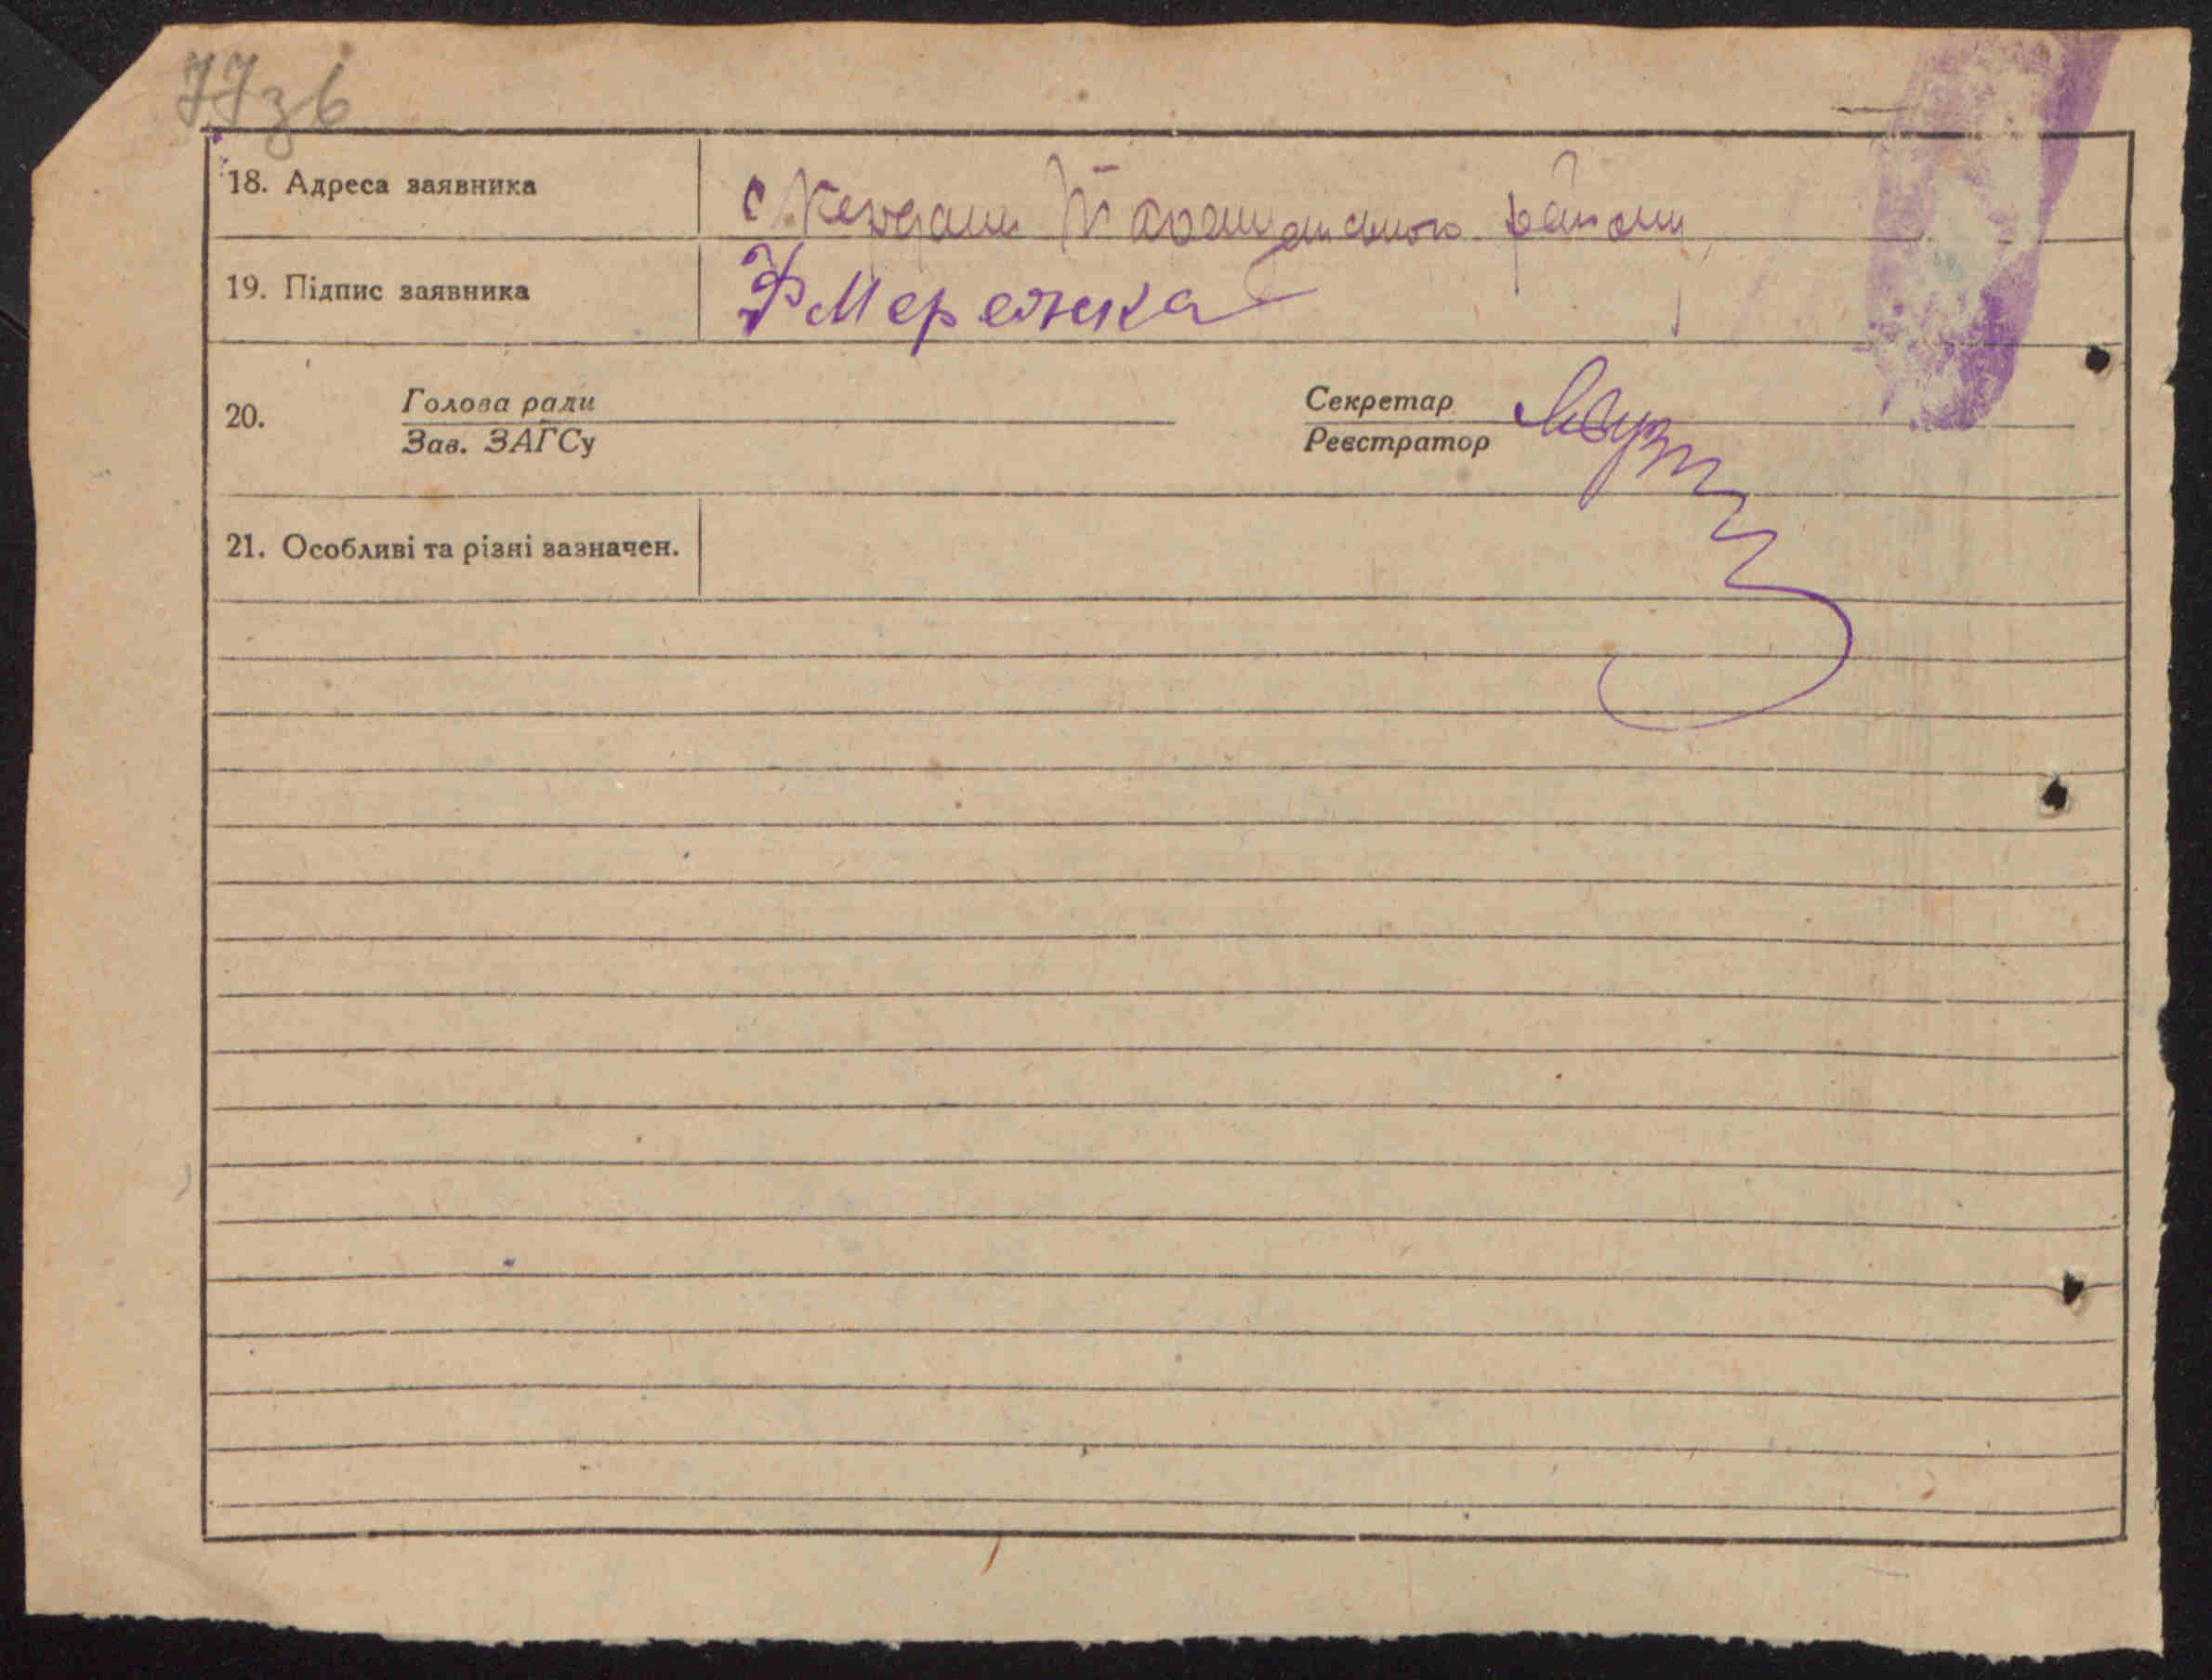 77 зв
18. Адреса заявника с Кердани Таращанського району
19. Підпис заявника Ф Мережка
20. Голова ради Секретар
Зав. ЗАГСу Реєстратор
21. Особливі та різні зазначен.